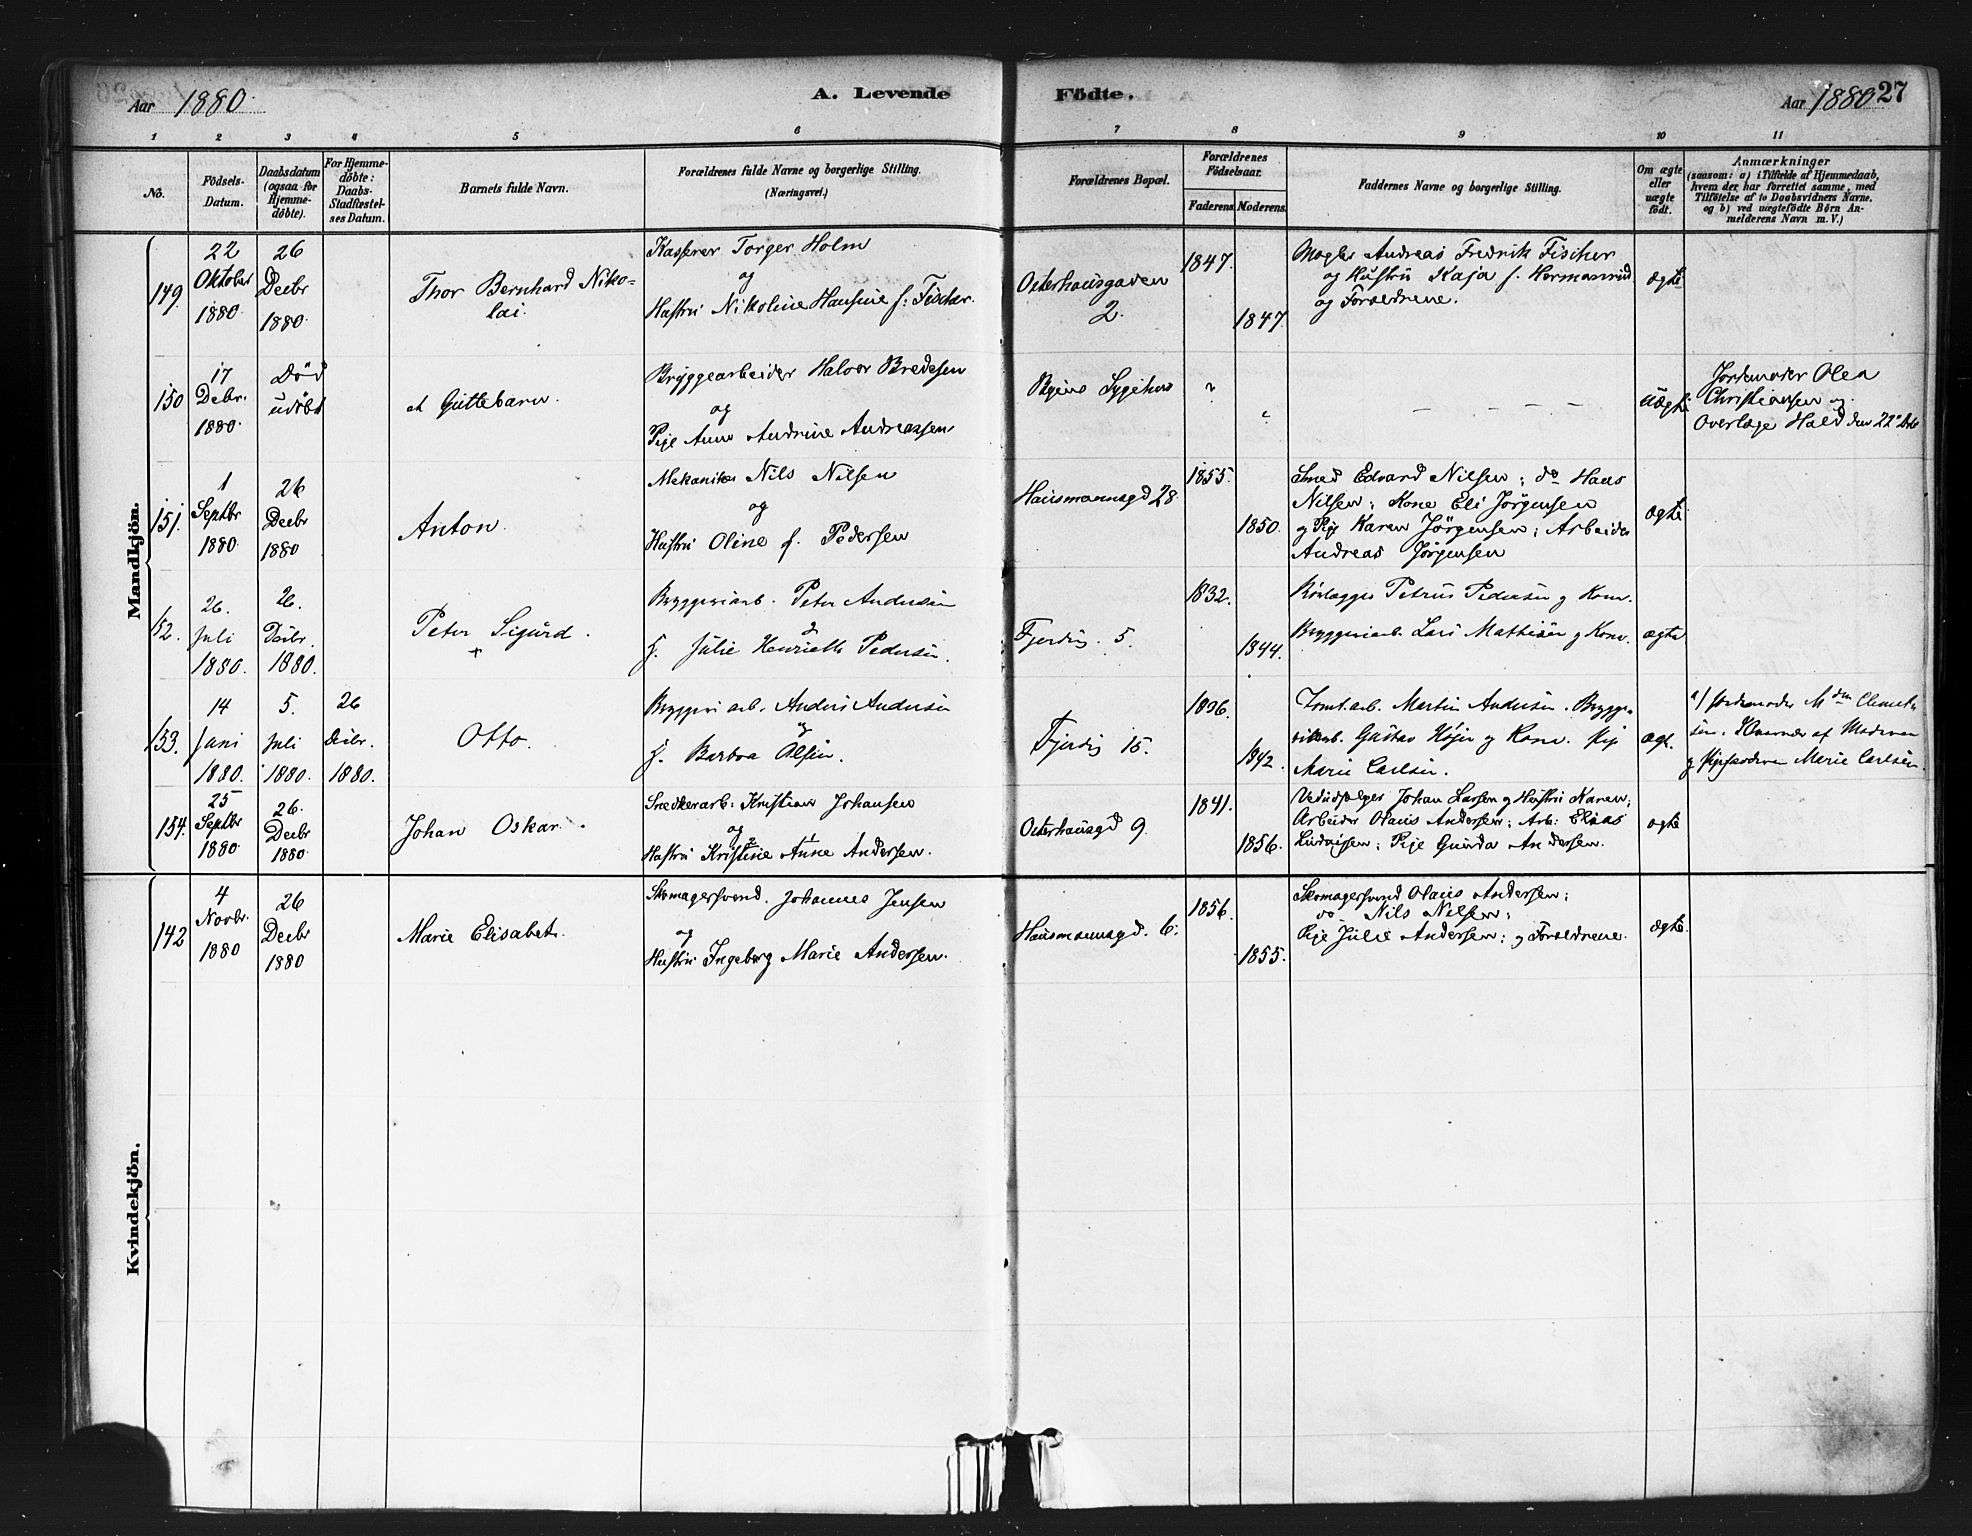 Aar 1880.
A. Levende Födte.
Aar 1880 27
1 2 3 4 5 6 7 8 9 10 11
No.
Födsels-
Datum.
Daabsdatum
(ogsaa for
Hjemme-
döbte).
For Hjemme-
döbte:
Daabs-
Stadfæstel-
ses Datum.
Barnets fulde Navn.
Forældrenes fulde Navne og borgerlige Stilling.
(Næringsvei.)
Forældrenes Bopæl.
Forældrenes
Födselsaar.
Faderens. Moderens.
Faddernes Navne og borgerlige Stilling.
Om ægte
eller
uægte
födt.
Anmærkninger
(saasom: a) i Tilfælde af Hjemmedaab,
hvem der har forrettet samme, med
Tilföielse af to Daabsvidners Navne.
og b) ved uægtefödte Börn An-
melderens Navn m. V.)
Mandkjön.
149.
22
Oktober
1880.
26
Decbr
1880.
Thor Bernhard Niko-
lai.
Kasserer Torger Holm
og
Hustru Nikoline Hansine f: Fischer.
Osterhausgaden
2.
1847.
1847.
Mægler Andreas Fredrik Fischer
og Hustru Kaja f. Hermansrud
og Forældrene.
ægte
150
17
Debr.
1880.
Död
udöbt
et Guttebarn.
Bryggearbeider Halvor Bredesen
og
Pige Anne Andrine Andreassen
Byens Sygehus
"
"
— — — —
Uægte
Jordemoder Olea
Christiansen og
Overlæge Hald den 22de Dcb
151.
1
Septbr
1880.
26
Decbr
1880
Anton.
Mekaniker Nils Nilsen
og
Hustru Oline f. Pedersen
Hausmannsgd 28.
1855.
1850.
Smed Edvard Nilsen; do Hans
Nilsen; Kone Eli Jørgensen
og Pige Karen Jørgensen; Arbeider
Andreas Jørgensen
ægte
152.
26.
Juli
1880.
26.
Decbr.
1880.
Peter Sigurd.
+
Bryggeriarb. Peter Andersen
og
f. Julie Henriette Pedersen.
Fjerding. 5.
1832.
1844.
Rørlægger Petrus Pedersen og Kone.
Bryggeriarb. Lars Mathisen og Kone.
ægte
153.
14
Juni
1880.
5.
Juli
1880.
26
Decbr.
1880.
Otto.
Bryggeriarb. Anders Andersen
og
f. Barbra Olsen.
Fjerding 15.
1842.
Tomt.arb. Martin Andersen. Brygge-
riarb. Gustav Højer og Kone. Pige
Marie Carlsen.
ægte.
a) Jordemoder Mdm Clement-
sen. Nærvær af Moderen
og Pige Marie Carlsen.
154.
25
Septbr
1880
26.
Decbr
1880
Johan Oskar.
Snedkerarb: Kristian Johansen
og
2 1
Hustru Kristine Anne Andersen.
Osterhausgd 9.
1841.
1856.
Vedudsælger Johan Larsen og Hustru Karen;
Arbeider Olaus Andersen; Arb: Elias
Ludvigsen; Pige Gunda Andersen.
ægte
Kvindekjön.
142
4
Novbr.
1880
26
Decbr
1880
Marie Elisabet.
Skomagersvend. Johannes Jensen
og
Hustru Ingeborg Marie Andersen.
Hausmannsgd. 6.
1856.
1855.
Skomagersvend Olaus Andersen;
do Nils Nilsen;
Pige Julie Andersen; og Forældrene.
ægte.